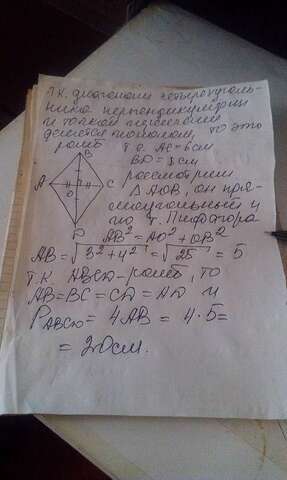 Т.К. диагонали четырёхуголь-
ника перпендикулярны
и точкой пересечения
делятся пополам, то это
ромб Т.О. AC = 6 см
BD = 8 см
рассмотрим
△AOB, он пря-
моугольный и
по т. Пифагора
AB² = AO² + OB²
AB = √3² + 4² = √25 = 5
Т.К ABCD - ромб, то
AB = BC = CD = AD и
P ABCD = 4AB = 4 · 5 =
= 20 см.
B
A
O
C
D